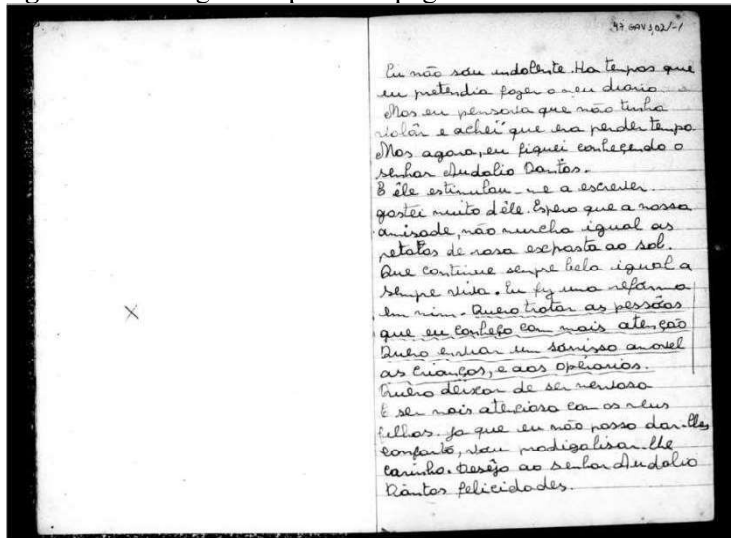 47, GAV 3,02/-1
Eu não sou indolente. Ha tempos que
eu pretendia fazer o meu diario
Mas eu pensava que não tinha
valôr e achei que era perder tempo
Mas agora, eu fiquei conheçendo o
senhor Audalio Dantos.
E êle estimulou-me a escrever.
gostei muito dêle. Espero que a nossa
amisade, não murcha igual as
petalas de rosa exposta ao sol.
Que continue sempre bela igual a
sempre viva. Eu fiz uma refórma
em mim. Quero tratar as pessôas
que eu conheço com mais atenção
Quero enviar um sorriso amavel
as crianças, e aos opérarios.
Quéro deixar de ser nervosa
E ser mais atenciosa com os meus
filhos. Ja que eu não posso dar-lhes
confortô, vou prodigalisar-lhe
carinho. Desêjo ao senhor Audalio
Dântas felicidades.